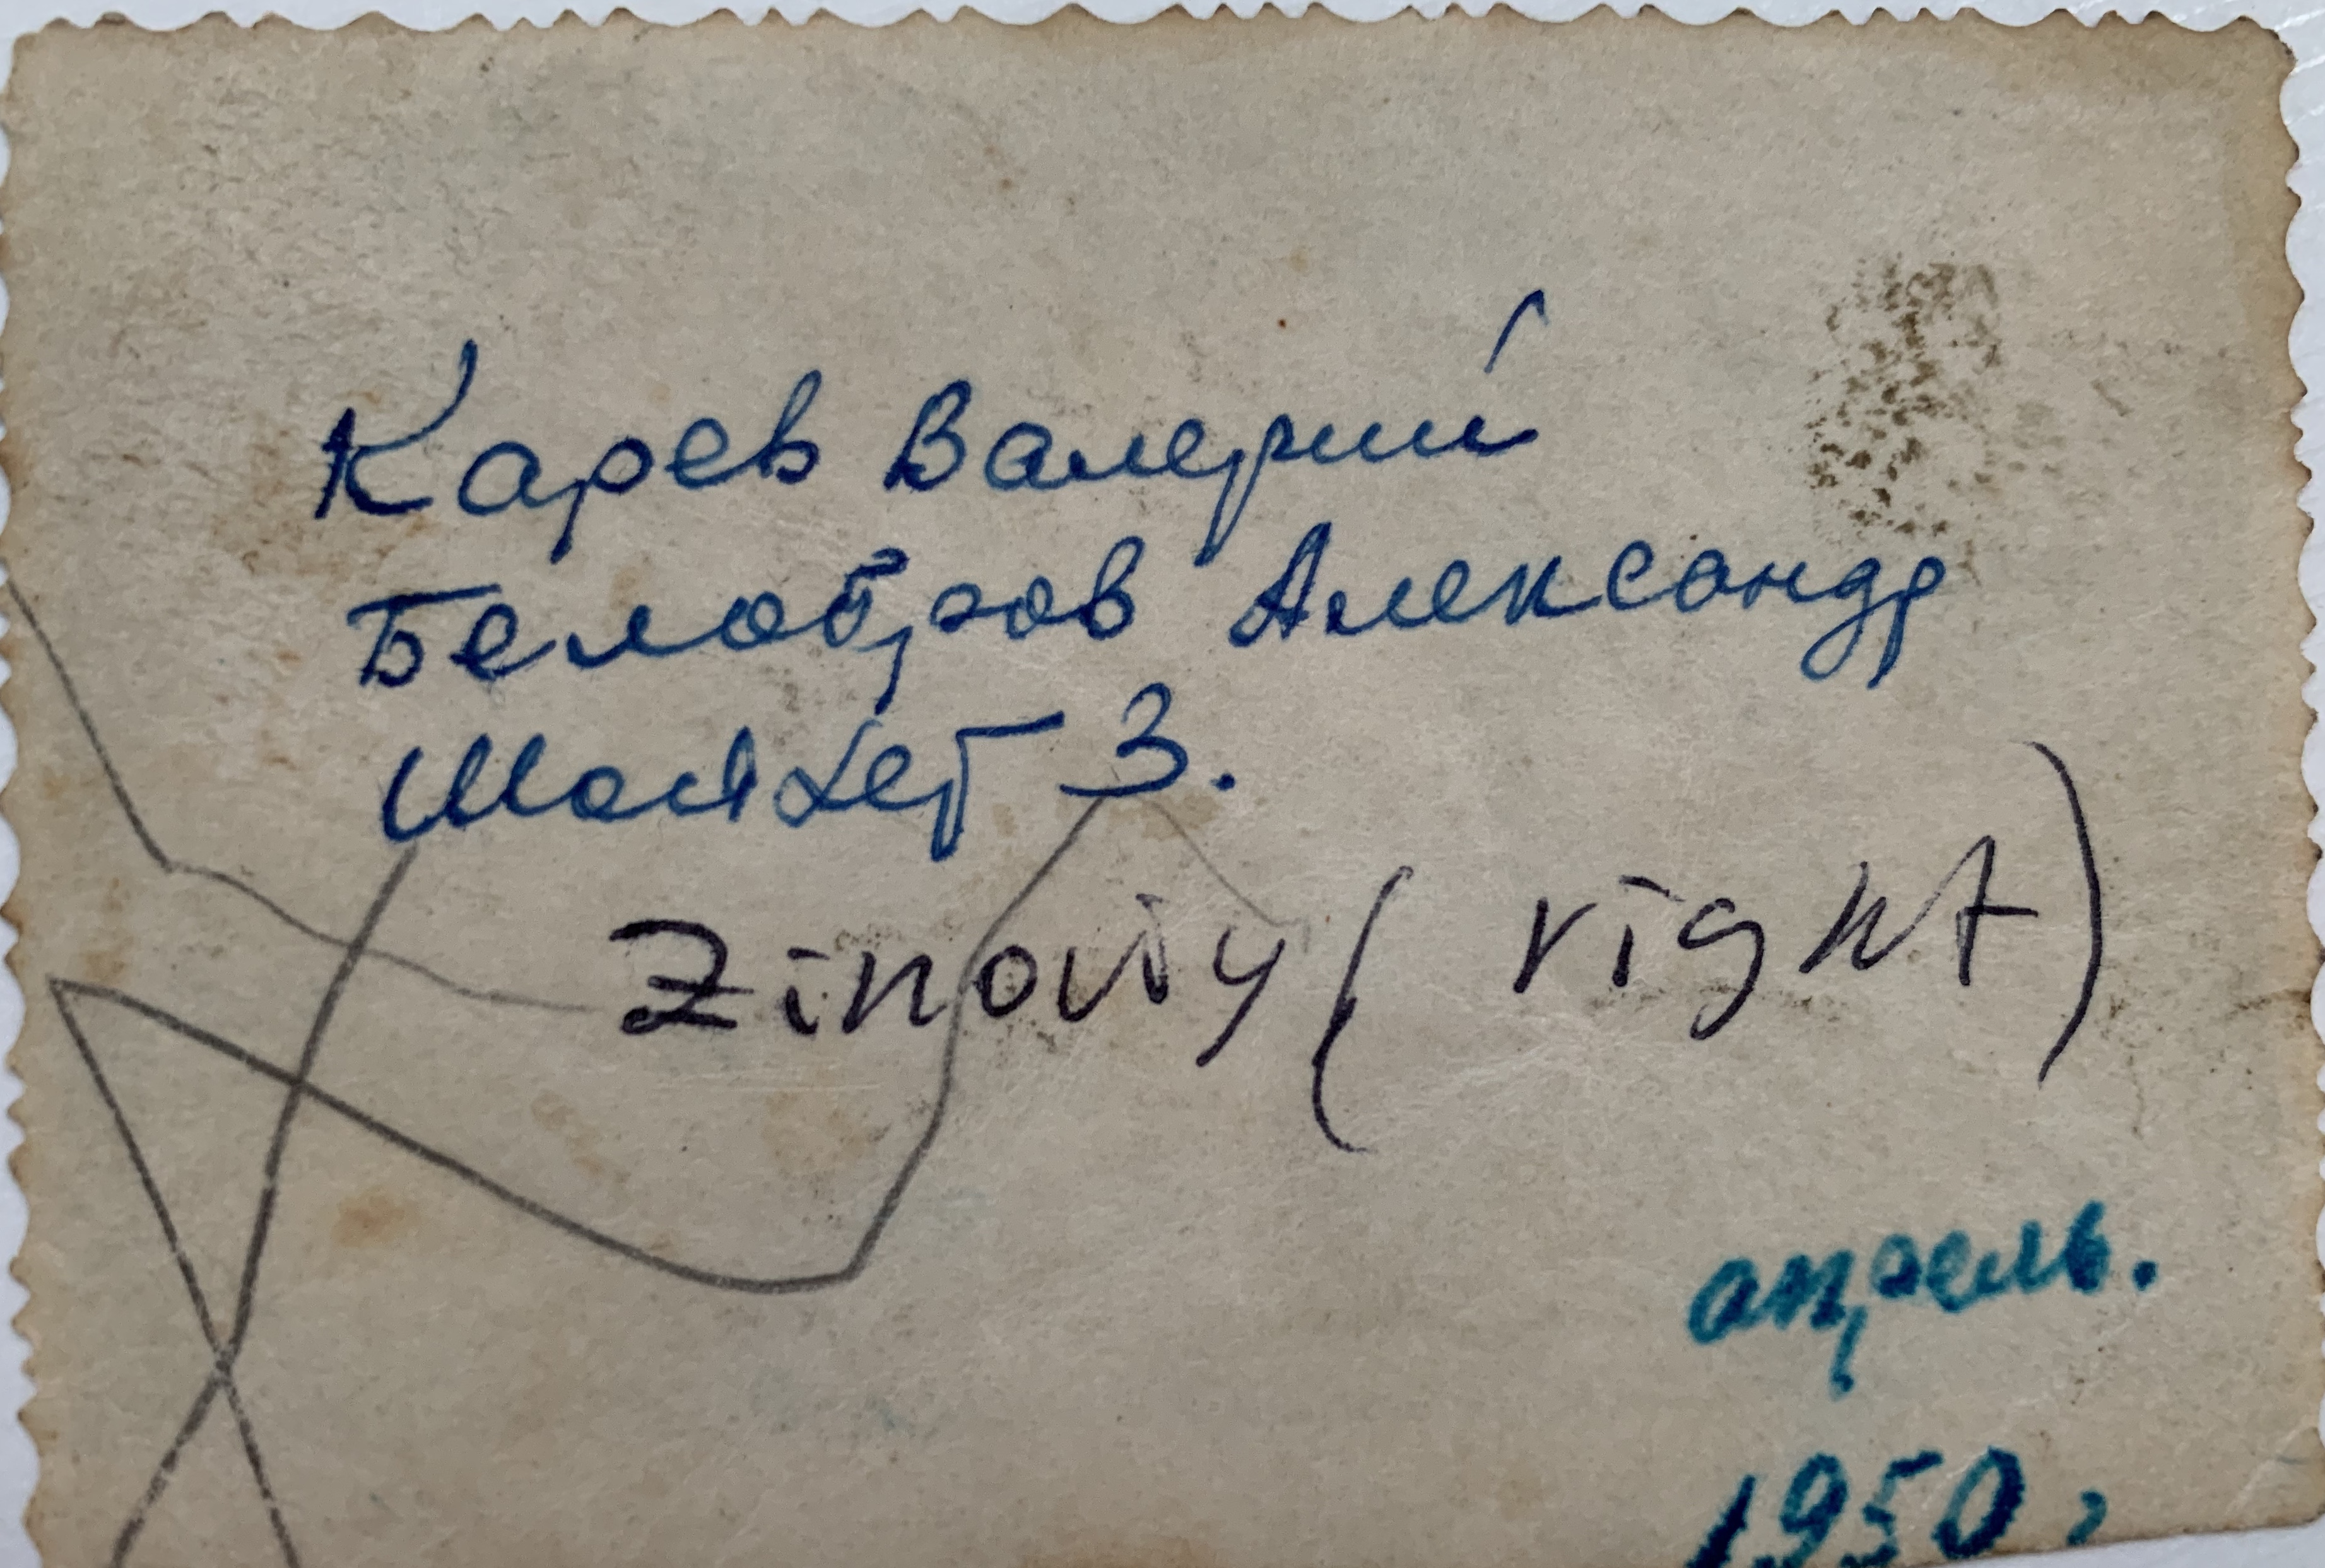 Карев Валерий
Белобров Александр
Шойхет З.
Zinoviy ( right )
апрель.
1950 г